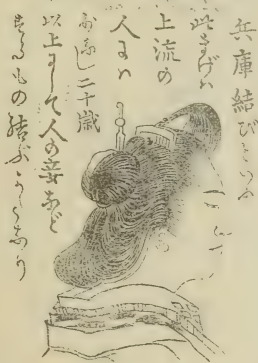 兵庫結びといふ
此まげハ
上流の
人にハ
なし二十歳
以上にして人の妾など
するもの結ぶ